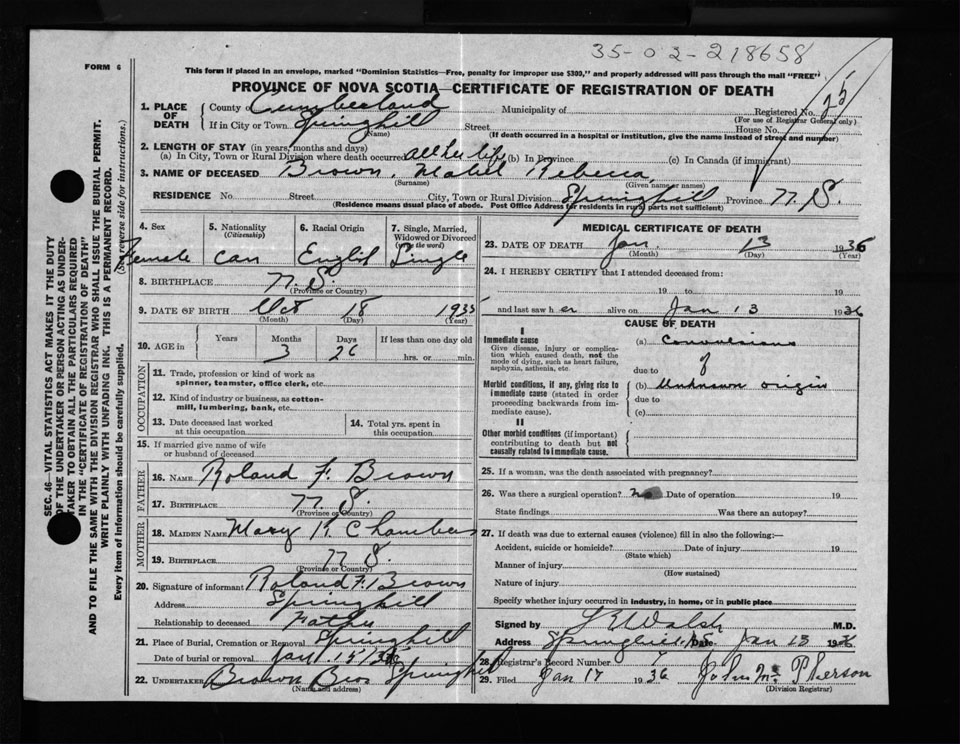 35-02-218658
FORM 6
This form if placed in an envelope, marked "Dominion Statistics—Free, penalty for improper use $300," and properly addressed will pass through the mail "FREE"
PROVINCE OF NOVA SCOTIA—CERTIFICATE OF REGISTRATION OF DEATH
1. PLACE OF DEATH
County of Cumberland Municipality of Registered No. 25
(For use of Registrar General only)
If in City or Town Springhill Street House No.
(Name) (If death occurred in a hospital or institution, give the name instead of street and number)
2. LENGTH OF STAY (in years, months and days)
(a) In City, Town or Rural Division where death occurred all her life (b) In Province (c) In Canada (if immigrant)
3. NAME OF DECEASED Brown, Mabel Rebecca
(Surname) (Given name or names)
RESIDENCE No Street City, Town or Rural Division Springhill Province N.S.
(Residence means usual place of abode. Post Office Address for residents in rural parts not sufficient)
4. Sex
Female
5. Nationality (Citizenship)
Can
6. Racial Origin
English
7. Single, Married, Widowed or Divorced (write the word)
Single
8. BIRTHPLACE N.S.
(Province or Country)
9. DATE OF BIRTH Oct 18 1935
(Month) (Day) (Year)
10. AGE in Years Months Days If less than one day old
3 26 hrs. or min.
OCCUPATION
11. Trade, profession or kind of work as spinner, teamster, office clerk, etc.
12. Kind of industry or business, as cotton-mill, lumbering, bank, etc.
13. Date deceased last worked at this occupation
14. Total yrs. spent in this occupation
15. If married give name of wife or husband of deceased
FATHER
16. NAME Roland F. Brown
17. BIRTHPLACE N.S.
(Province or Country)
MOTHER
18. MAIDEN NAME Mary K. Chambers
19. BIRTHPLACE N.S.
(Province or Country)
20. Signature of informant Roland F. Brown
Address Springhill
Relationship to deceased Father
21. Place of Burial, Cremation or Removal Springhill
Date of burial or removal Jan 15/36
22. UNDERTAKER Brown Bros Springhill
(Name and address)
MEDICAL CERTIFICATE OF DEATH
23. DATE OF DEATH Jan. 13 1936
(Month) (Day) (Year)
24. I HEREBY CERTIFY that I attended deceased from:
19 to 19
and last saw her alive on Jan 13 1936
CAUSE OF DEATH
I
Immediate cause
Give disease, injury or complication which caused death, not the mode of dying, such as heart failure, asphyxia, asthenia, etc.
(a) Convulsions
of
due to
Morbid conditions, if any, giving rise to immediate cause (stated in order proceeding backwards from immediate cause).
(b) Unknown origin
due to
(c)
II
Other morbid conditions (if important) contributing to death but not causally related to immediate cause.
25. If a woman, was the death associated with pregnancy?
26. Was there a surgical operation? no Date of operation 19
State findings Was there an autopsy?
27. If death was due to external causes (violence) fill in also the following:—
Accident, suicide or homicide? Date of injury 19
(State which)
Manner of injury
(How sustained)
Nature of injury
Specify whether injury occurred in industry, in home, or in public place
Signed by Walsh M.D.
Address Springhill NS Date Jan 13 1936
28. Registrar's Record Number 7
29. Filed Jan 17 1936 John McPherson
(Division Registrar)
SEC. 46—VITAL STATISTICS ACT MAKES IT THE DUTY
OF THE UNDERTAKER OR PERSON ACTING AS UNDER-
TAKER TO OBTAIN ALL THE PARTICULARS REQUIRED
IN THE "CERTIFICATE OF REGISTRATION OF DEATH"
AND TO FILE THE SAME WITH THE DIVISION REGISTRAR WHO SHALL ISSUE THE BURIAL PERMIT.
WRITE PLAINLY WITH UNFADING INK. THIS IS A PERMANENT RECORD.
Every item of information should be carefully supplied. (See reverse side for instructions.)